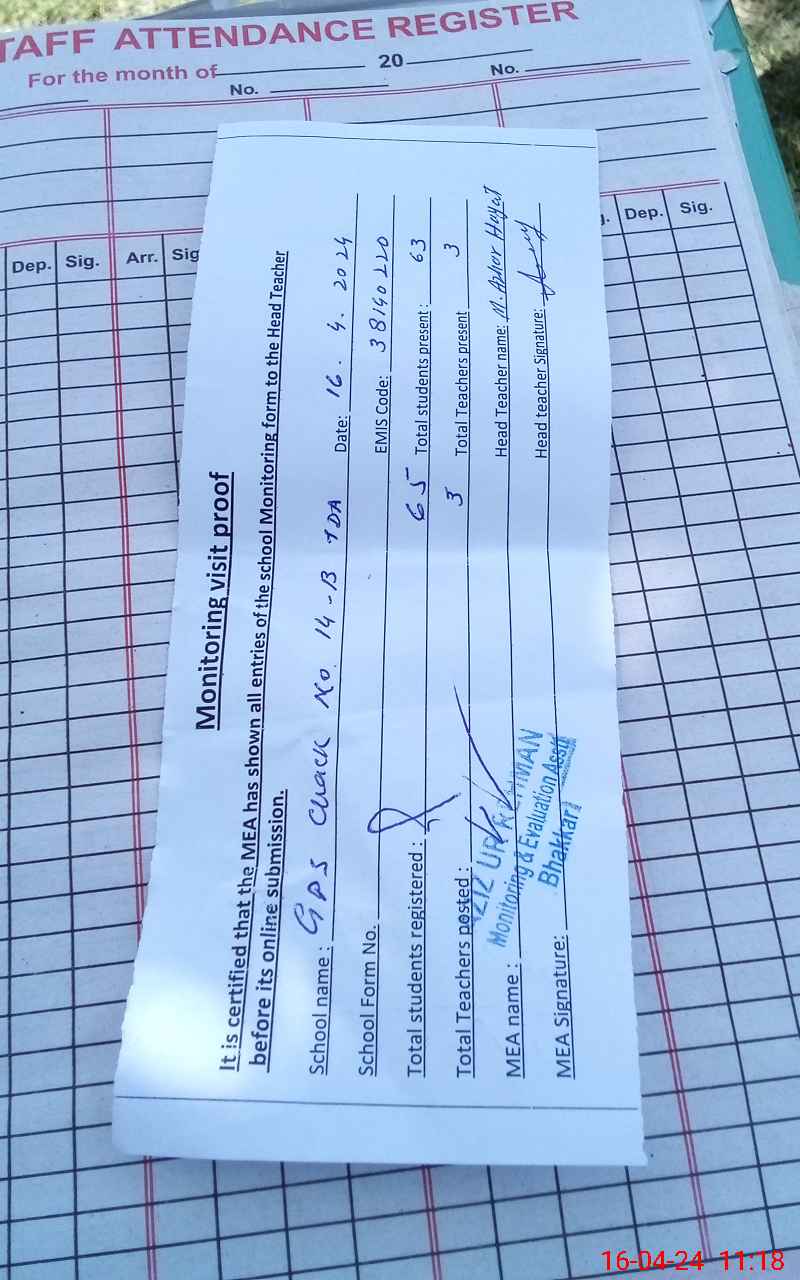 TAFF ATTENDANCE REGISTER
For the month of 20
No. No.
Dep. Sig. Arr. Sig Dep. Sig.
Monitoring visit proof
It is certified that the MEA has shown all entries of the school Monitoring form to the Head Teacher
before its online submission.
School name : GPS Chack No. 14-B TDA Date: 16. 4. 2024
School Form No. EMIS Code: 38140220
Total students registered : 65 Total students present : 63
Total Teachers posted : 3 Total Teachers present 3
MEA name : Head Teacher name: M. Azhar Hayat
MEA Signature: Head teacher Signature:
UR REHMAN
Monitoring & Evaluation Asstt
Bhakkar
16-04-24 11:18